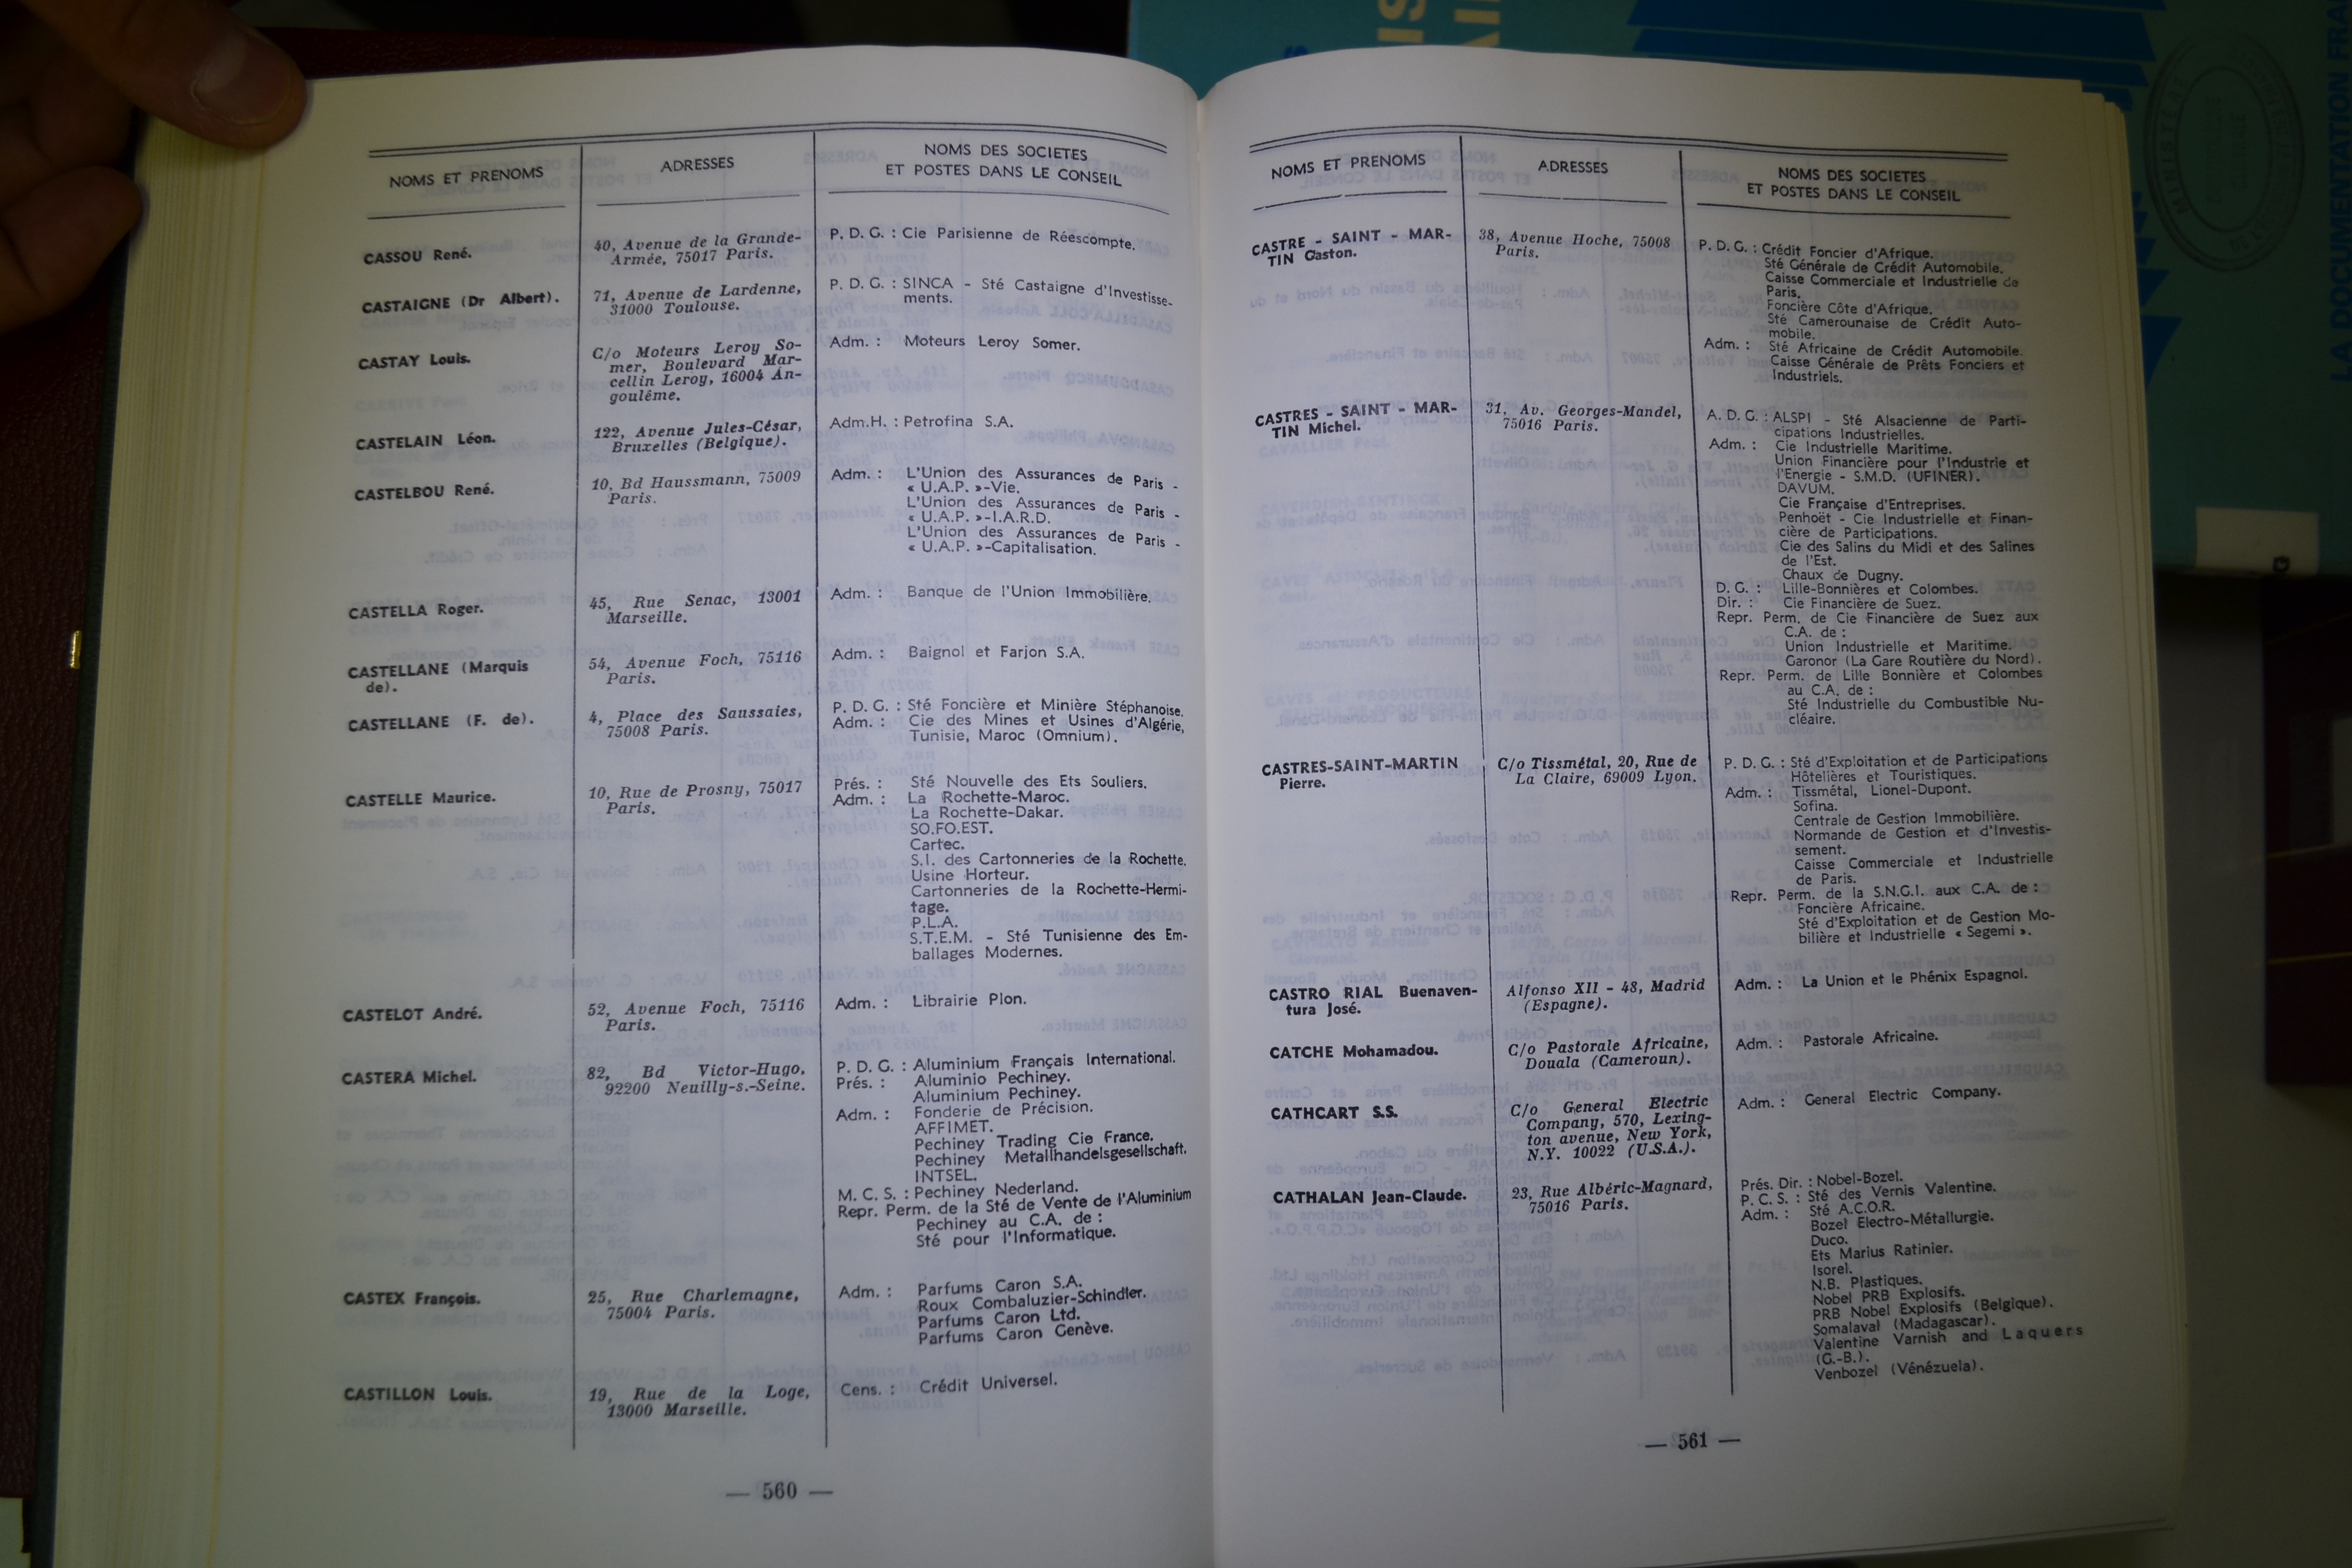 NOMS ET PRENOMS
ADRESSES
NOMS DES SOCIETES
ET POSTES DANS LE CONSEIL
CASSOU René.
40, Avenue de la Grande-
Armée, 75017 Paris.
P. D. G. : Cie Parisienne de Réescompte.
CASTAIGNE (Dr Albert).
71, Avenue de Lardenne,
31000 Toulouse.
P. D. G. : SINCA - Sté Castaigne d'Investisse-
ments.
CASTAY Louis.
C/o Moteurs Leroy So-
mer, Boulevard Mar-
cellin Leroy, 16004 An-
goulême.
Adm. : Moteurs Leroy Somer.
CASTELAIN Léon.
122, Avenue Jules-César,
Bruxelles (Belgique).
Adm.H. : Petrofina S.A.
CASTELBOU René.
10, Bd Haussmann, 75009
Paris.
Adm. : L'Union des Assurances de Paris -
« U.A.P. »-Vie.
L'Union des Assurances de Paris -
« U.A.P. »-I.A.R.D.
L'Union des Assurances de Paris -
« U.A.P. »-Capitalisation.
CASTELLA Roger.
45, Rue Senac, 13001
Marseille.
Adm. : Banque de l'Union Immobilière.
CASTELLANE (Marquis
de).
54, Avenue Foch, 75116
Paris.
Adm. : Baignol et Farjon S.A.
CASTELLANE (F. de).
4, Place des Saussaies,
75008 Paris.
P. D. G. : Sté Foncière et Minière Stéphanoise.
Adm. : Cie des Mines et Usines d'Algérie,
Tunisie, Maroc (Omnium).
CASTELLE Maurice.
10, Rue de Prosny, 75017
Paris.
Prés. : Sté Nouvelle des Ets Souliers.
Adm. : La Rochette-Maroc.
La Rochette-Dakar.
SO.FO.EST.
Cartec.
S.I. des Cartonneries de la Rochette.
Usine Horteur.
Cartonneries de la Rochette-Hermi-
tage.
P.L.A.
S.T.E.M. - Sté Tunisienne des Em-
ballages Modernes.
CASTELOT André.
52, Avenue Foch, 75116
Paris.
Adm. : Librairie Plon.
CASTERA Michel.
82, Bd Victor-Hugo,
92200 Neuilly-s.-Seine.
P. D. G. : Aluminium Français International.
Prés. : Aluminio Pechiney.
Aluminium Pechiney.
Adm. : Fonderie de Précision.
AFFIMET.
Pechiney Trading Cie France.
Pechiney Metallhandelsgesellschaft.
INTSEL.
M. C. S. : Pechiney Nederland.
Repr. Perm. de la Sté de Vente de l'Aluminium
Pechiney au C.A. de :
Sté pour l'Informatique.
CASTEX François.
25, Rue Charlemagne,
75004 Paris.
Adm. : Parfums Caron S.A.
Roux Combaluzier-Schindler.
Parfums Caron Ltd.
Parfums Caron Genève.
CASTILLON Louis.
19, Rue de la Loge,
13000 Marseille.
Cens. : Crédit Universel.
— 560 —
NOMS ET PRENOMS
ADRESSES
NOMS DES SOCIETES
ET POSTES DANS LE CONSEIL
CASTRE - SAINT - MAR-
TIN Gaston.
38, Avenue Hoche, 75008
Paris.
P. D. G. : Crédit Foncier d'Afrique.
Sté Générale de Crédit Automobile.
Caisse Commerciale et Industrielle de
Paris.
Foncière Côte d'Afrique.
Sté Camerounaise de Crédit Auto-
mobile.
Adm. : Sté Africaine de Crédit Automobile.
Caisse Générale de Prêts Fonciers et
Industriels.
CASTRES - SAINT - MAR-
TIN Michel.
31, Av. Georges-Mandel,
75016 Paris.
A. D. G. : ALSPI - Sté Alsacienne de Parti-
cipations Industrielles.
Adm. : Cie Industrielle Maritime.
Union Financière pour l'Industrie et
l'Energie - S.M.D. (UFINER).
DAVUM.
Cie Française d'Entreprises.
Penhoët - Cie Industrielle et Finan-
cière de Participations.
Cie des Salins du Midi et des Salines
de l'Est.
Chaux de Dugny.
D. G. : Lille-Bonnières et Colombes.
Dir. : Cie Financière de Suez.
Repr. Perm. de Cie Financière de Suez aux
C.A. de :
Union Industrielle et Maritime.
Garonor (La Gare Routière du Nord).
Repr. Perm. de Lille Bonnière et Colombes
au C.A. de :
Sté Industrielle du Combustible Nu-
cléaire.
CASTRES-SAINT-MARTIN
Pierre.
C/o Tissmétal, 20, Rue de
La Claire, 69009 Lyon.
P. D. G. : Sté d'Exploitation et de Participations
Hôtelières et Touristiques.
Adm. : Tissmétal, Lionel-Dupont.
Sofina.
Centrale de Gestion Immobilière.
Normande de Gestion et d'Investis-
sement.
Caisse Commerciale et Industrielle
de Paris.
Repr. Perm. de la S.N.G.I. aux C.A. de :
Foncière Africaine.
Sté d'Exploitation et de Gestion Mo-
bilière et Industrielle « Segemi ».
CASTRO RIAL Buenaven-
tura José.
Alfonso XII - 48, Madrid
(Espagne).
Adm. : La Union et le Phénix Espagnol.
CATCHE Mohamadou.
C/o Pastorale Africaine,
Douala (Cameroun).
Adm. : Pastorale Africaine.
CATHCART S.S.
C/o General Electric
Company, 570, Lexing-
ton avenue, New York,
N.Y. 10022 (U.S.A.).
Adm. : General Electric Company.
CATHALAN Jean-Claude.
23, Rue Albéric-Magnard,
75016 Paris.
Prés. Dir. : Nobel-Bozel.
P. C. S. : Sté des Vernis Valentine.
Adm. : Sté A.C.O.R.
Bozel Electro-Métallurgie.
Duco.
Ets Marius Ratinier.
Isorel.
N.B. Plastiques.
Nobel PRB Explosifs.
PRB Nobel Explosifs (Belgique).
Somalaval (Madagascar).
Valentine Varnish and Laquers
(G.-B.).
Venbozel (Vénézuela).
— 561 —
LA DOCUMENTATION FRA
MINISTÈRE